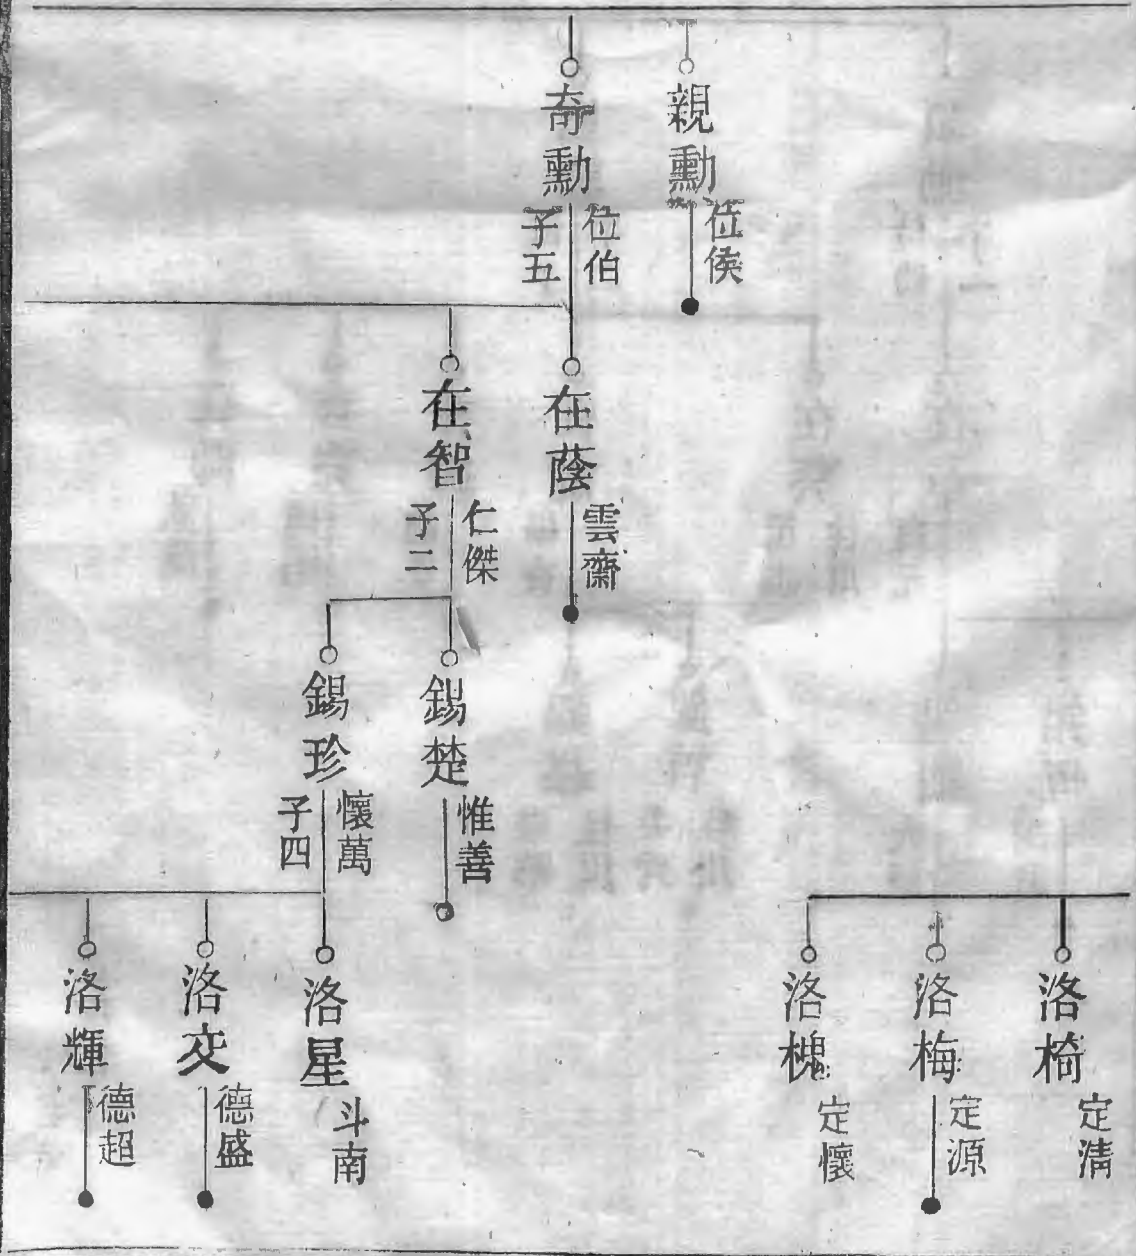 親勳
位侯
奇勳
位伯
子五
在蔭
雲齋
在智
仁傑
子二
錫楚
惟善
錫珍
懷萬
子四
洛椅
定清
洛梅
定源
洛槐
定懷
洛星
斗南
洛文
德盛
洛輝
德超